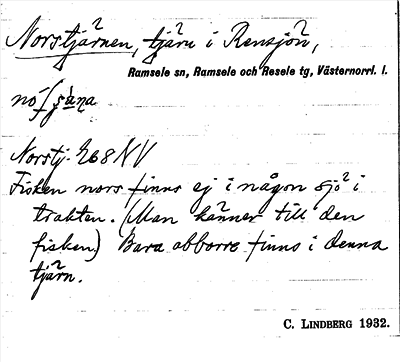 Norstjärnen, tjärn i Rensjön,
Ramsele sn, Ramsele och Resele tg, Västernorrl. l.
Norstj. 268 NV
Fisken nors finns ej i någon sjö i
trakten. (Man känner till den
fisken.) Bara abborre finns i denna
tjärn.
C. LINDBERG 1932.